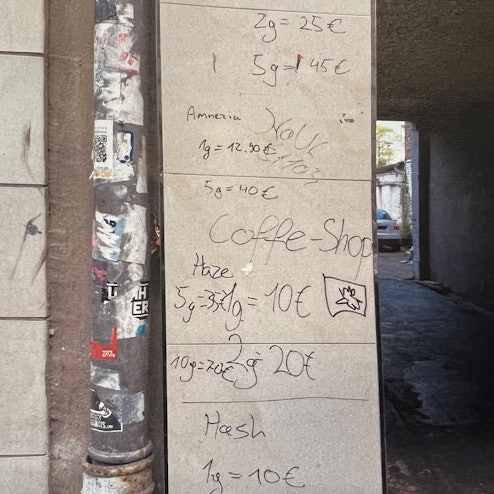 2g = 25€
5g = 45€
Amnesia
1g = 12.90€
5g = 40€
Coffe-Shop
Haze
5g=35€
1g = 10€
10g=70€
2g 20€
Hash
1g = 10€